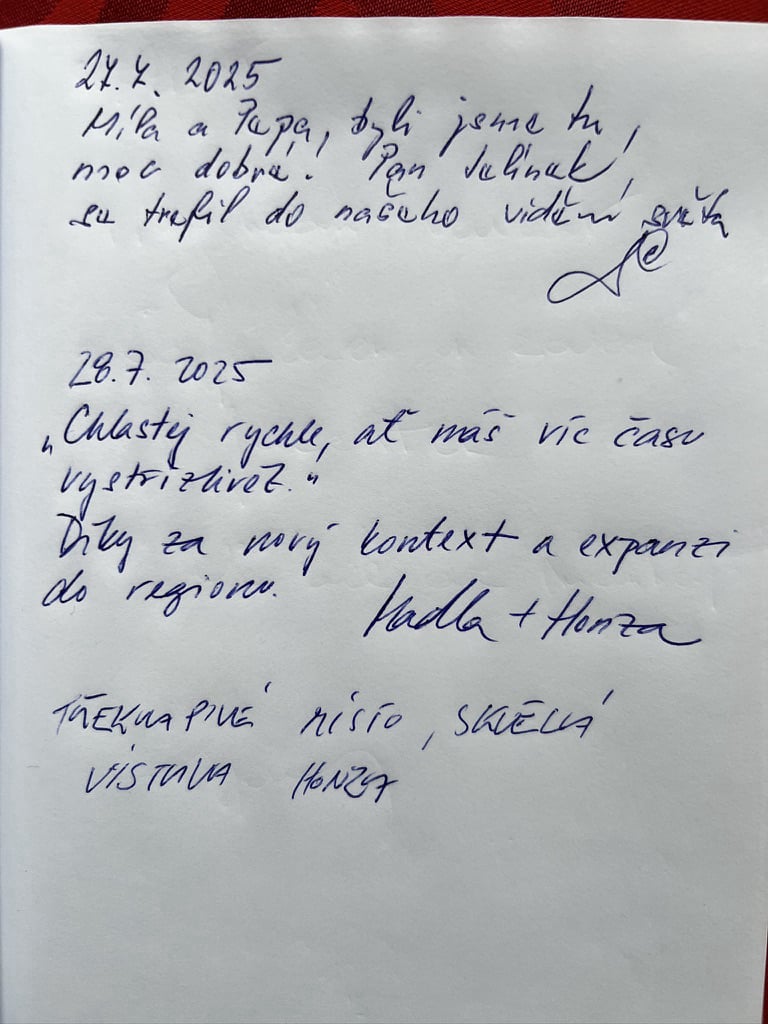 27.7. 2025
Míla a Pepa, byli jsme tu,
moc dobré! Pan Jelínek,
se trefil do našeho vidění světa
28.7. 2025
„Chlastej rychle, ať máš víc času
vystřízlivět."
Díky za nový kontext a expanzi
do regionu.
Madla + Honza
PŘEKVAPIVÉ MÍSTO, SKVĚLÁ
VÝSTAVA HONZA